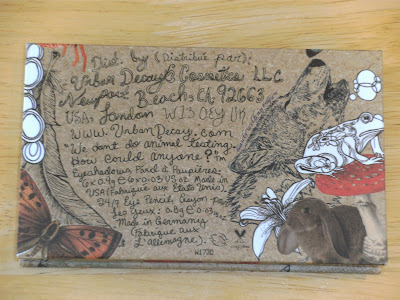 Dist. by (Distribué par):
Urban Decay Cosmetics LLC
Newport Beach, CA 92663
USA, London W1S 0EY UK
www.UrbanDecay.com
"We don't do animal testing.
How could anyone?"™
Eyeshadows Fard à Paupières:
6x0.4g e 6x0.03 US oz. Made in
USA (Fabriqué aux États Unis).
24/7 Eye Pencil Crayon pour
les Yeux: 0.8g e 0.03
Made in Germany
(Fabriqué aux
L'allemagne).